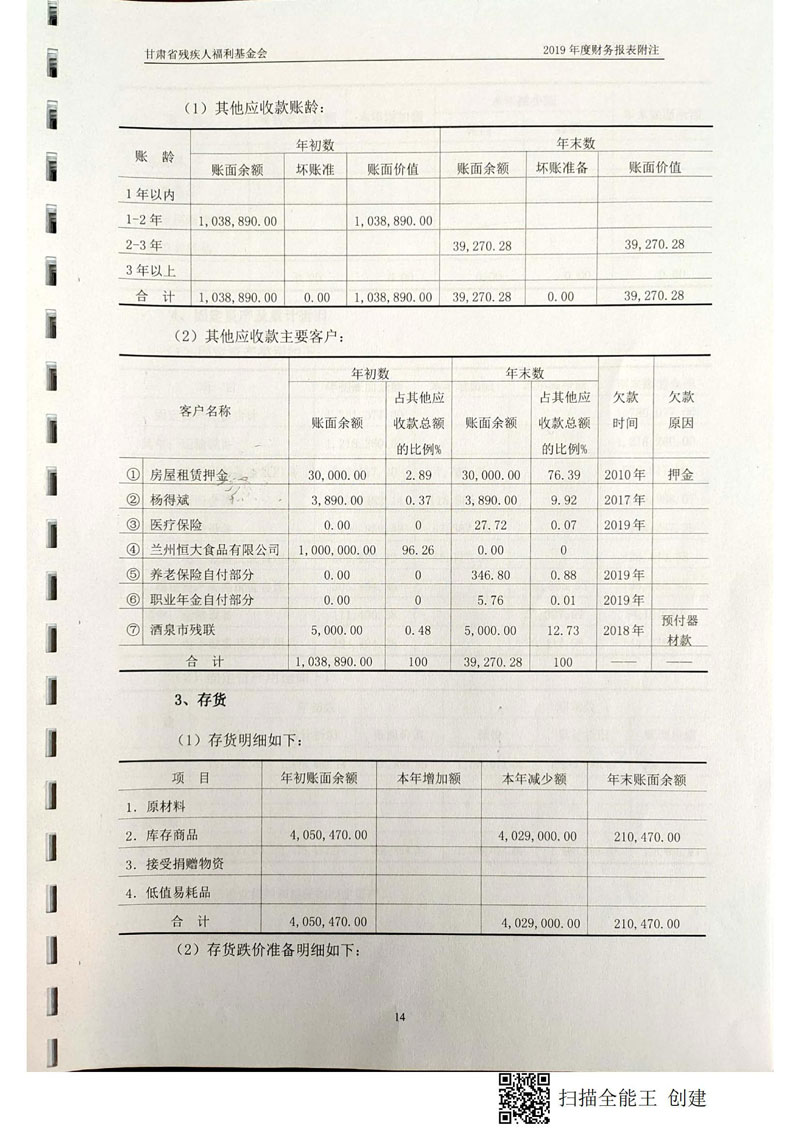 甘肃省残疾人福利基金会 2019 年度财务报表附注
（1）其他应收款账龄：
账 龄 年初数 年末数
账面余额 坏账准 账面价值 账面余额 坏账准备 账面价值
1 年以内
1-2 年 1,038,890.00 1,038,890.00
2-3 年 39,270.28 39,270.28
3 年以上
合 计 1,038,890.00 0.00 1,038,890.00 39,270.28 0.00 39,270.28
（2）其他应收款主要客户：
客户名称 年初数 年末数 欠款时间 欠款原因
账面余额 占其他应收款总额的比例% 账面余额 占其他应收款总额的比例%
① 房屋租赁押金 30,000.00 2.89 30,000.00 76.39 2010 年 押金
② 杨得斌 3,890.00 0.37 3,890.00 9.92 2017 年
③ 医疗保险 0.00 0 27.72 0.07 2019 年
④ 兰州恒大食品有限公司 1,000,000.00 96.26 0.00 0
⑤ 养老保险自付部分 0.00 0 346.80 0.88 2019 年
⑥ 职业年金自付部分 0.00 0 5.76 0.01 2019 年
⑦ 酒泉市残联 5,000.00 0.48 5,000.00 12.73 2018 年 预付器材款
合 计 1,038,890.00 100 39,270.28 100 —— ——
3、存货
（1）存货明细如下：
项 目 年初账面余额 本年增加额 本年减少额 年末账面余额
1. 原材料
2. 库存商品 4,050,470.00 4,029,000.00 210,470.00
3. 接受捐赠物资
4. 低值易耗品
合 计 4,050,470.00 4,029,000.00 210,470.00
（2）存货跌价准备明细如下：
14
扫描全能王 创建